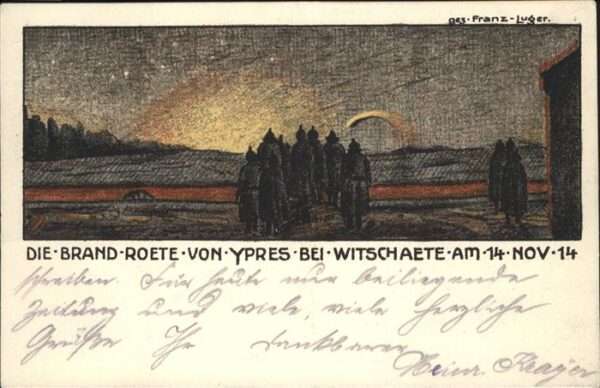 ges. Franz-Luger.
DIE·BRAND-ROETE·VON·YPRES·BEI·WITSCHAETE·AM·14·NOV·14
schreiben. Für heute nur beiliegende
Zeitung und viele, viele herzliche
Grüße Ihr dankbarer
Heinr.